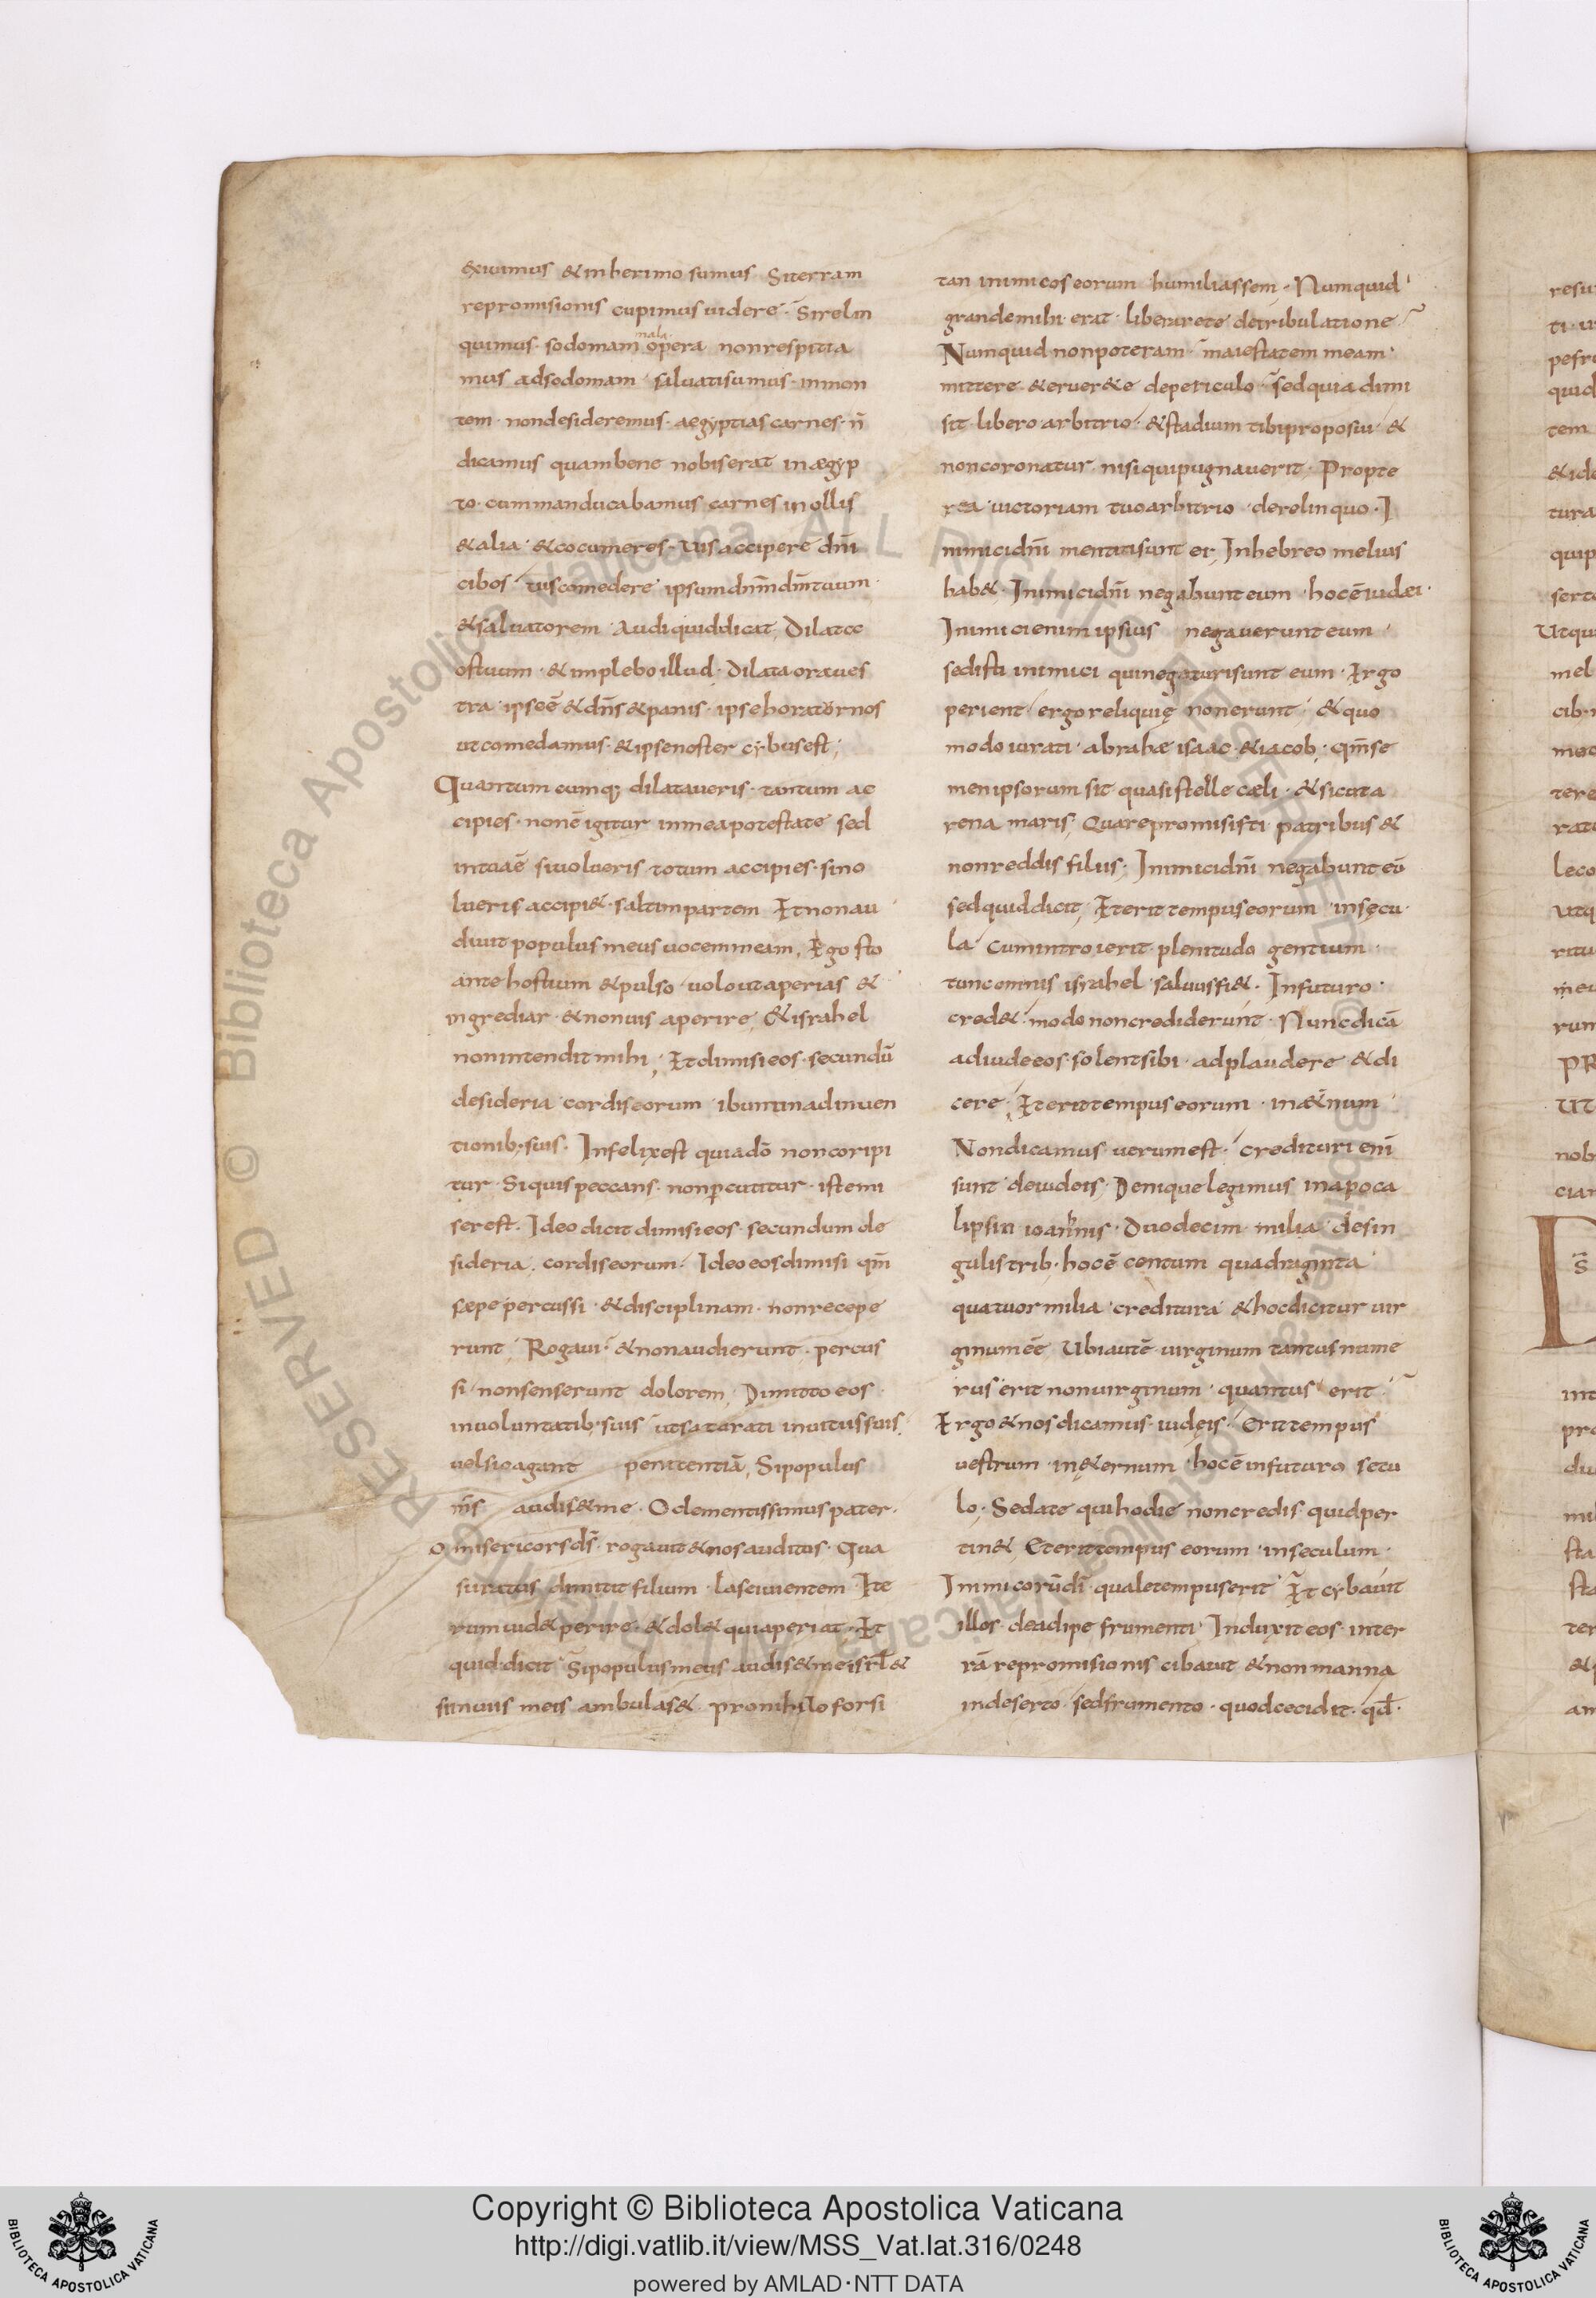 exiuimus & in herimo sumus Si terram
repromisionis cupimus uidere · Si relin
quimus · sodomam mala opera non respitia
mus ad sodomam · siluati sumus · in mon
tem · non desideremus · aegyptias carnes · n̄
dicamus quam bene nobis erat in ægyp
to · cum manducabamus carnes in ollis
& alia · & cocumeres · uis accipere dn̄i
cibos uis comedere ipsum dn̄m dm̄ tuum ·
& saluatorem · Audi quid dicat, Dilata
os tuum · & implebo illud · Dilata ora ues
tra ipse ē & dn̄s & panis · ipse horatur nos
ut comedamus · & ipse noster cybus est;
Quantumcumq; dilataueris · tantum ac
cipies · non ē igitur in mea potestate sed
in tua ē si uolueris totum accipies · si no
lueris accipi& · saltim partem Et non au
diuit populus meus uocem meam, Ego sto
ante hostium & pulso uolo ut aperias &
ingrediar · & non uis aperire, & israhel
non intendit mihi, Et dimisi eos · secundū
desideria cordis eorum ibunt in adinuen
tionib; suis · Infelix est quia dō non coripi
tur · Si quis peccans · non p̄cutitur · iste mi
ser est · Ideo dicit dimisi eos · secundum de
sideria · cordis eorum · Ideo eos dimisi qm̄
sæpe percussi · & disciplinam · non recepe
runt, Rogaui · & non audierunt · percus
si non senserunt dolorem, Dimitto eos
in uoluntatib; suis ut saturati in uitus suis,
uel sic agant penitentiā, Si populus
m̄s audis& me · O clementissimus pater ·
O misericors ds̄ · rogauit & nos auditus · Qua
si iratus dimittit filium lasciuientem Ite
rum uid& perire · & dol& quia periat · Et
quid dicit Si populus meus audis& me isrl̄ &
si in uiis meis ambulas& pro nihilo forsi
tan inimicos eorum humiliassem · Numquid
grande mihi erat · liberare te de tribulatione
Numquid non poteram · maiestatem meam ·
mittere · & eruer& e de periculo · sed quia dimi
sit libero arbitrio · & stadium tibi proposui &
non coronatur nisi qui pugnauerit · Propte
rea uictoriam tuo arbitrio derelinquo · I
nimici dn̄i mentiti sunt ei, In hebreo melius
hab& · Inimici dn̄i negabunt eum hoc ē iudæi ·
Inimici enim ipsius negauerunt eum
sed isti inimici qui negaturi sunt eum · Ergo
perient ergo reliquię non erunt & quo
modo iurati · abrahæ isaac · & iacob · qm̄ se
men ipsorum sit quasi stelle cæli · & sicut a
rena maris, Quare promisisti patribus &
non reddis filiis; Inimici dn̄i negabunt eū
sed quid dicit, Et erit tempus eorum in sęcu
la Cum introierit plenitudo gentium ·
tunc omnis israhel saluus fi& · In futuro ·
cred& modo non crediderunt · Nunc dicā
ad iudeeos · solent sibi · adplaudere & di
cere Et erit tempus eorum · in æ&num
Non dicamus uerum est · credituri eni
sunt de iudeis, Denique legimus in apoca
lipsin iohannis · Duodecim milia de sin
gulis trib · hoc ē centum quadraginta
quatuor milia creditura & hoc dicitur uir
ginum ēē Ubi autē uirginum tantus nume
rus erit non uirginum quantus erit
Ergo & nos dicamus iudęis · Erit tempus
uestrum in ę&ernum hoc ē in futuro secu
lo · Sed a te qui hodie non credis quid per
tin& Et erit tempus eorum in seculum ·
Inimicorū dī quale tempus erit Et cybauit
illos de adipe frumenti, Induxit eos in ter
rā repromisionis cibauit & non manna
in deserto sed frumento quod cecidit · qd̄ ·
Copyright © Biblioteca Apostolica Vaticana
http://digi.vatlib.it/view/MSS_Vat.lat.316/0248
powered by AMLAD·NTT DATA